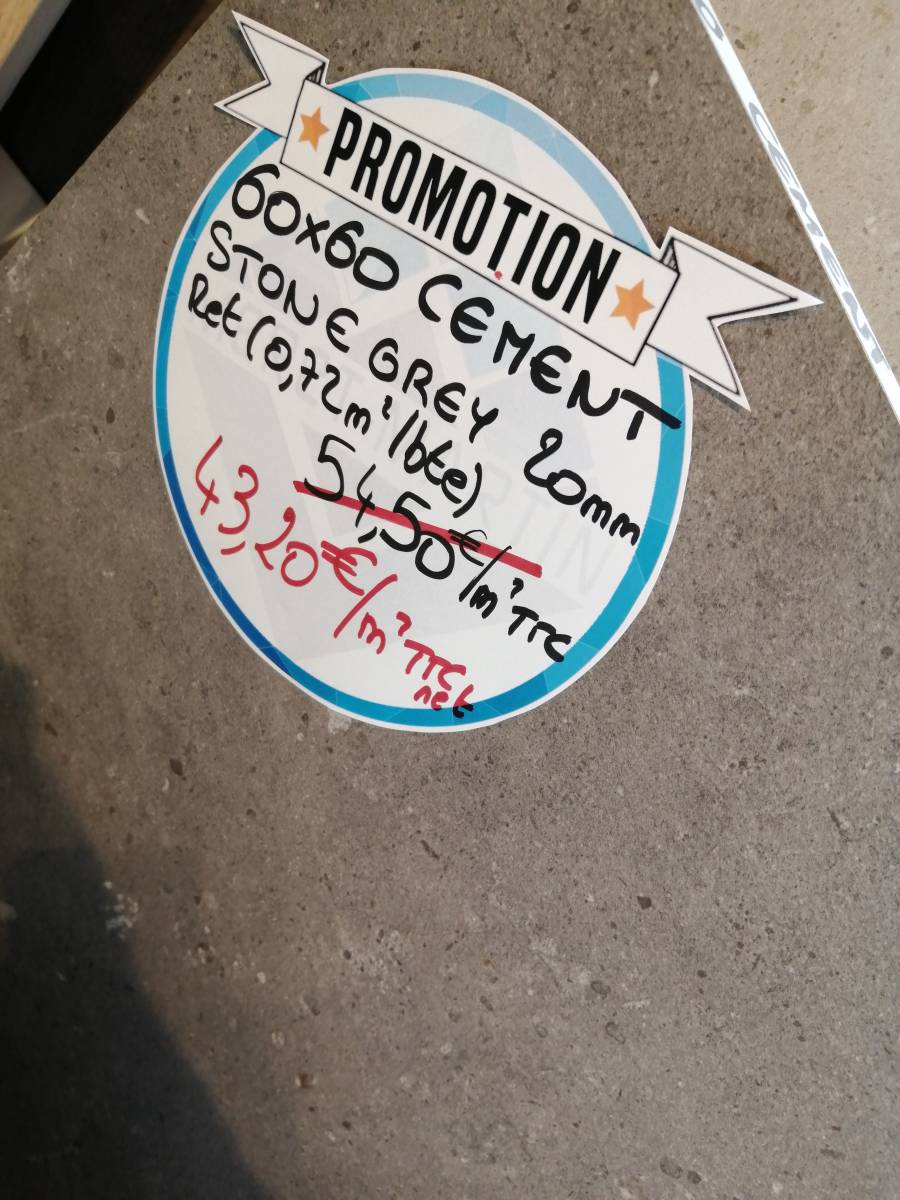 PROMOTION
60x60 CEMENT
STONE GREY 20mm
Ret (0,72m²/bte)
54,50€/m² TTC
43,20€/m² TTC
net
CEMENT